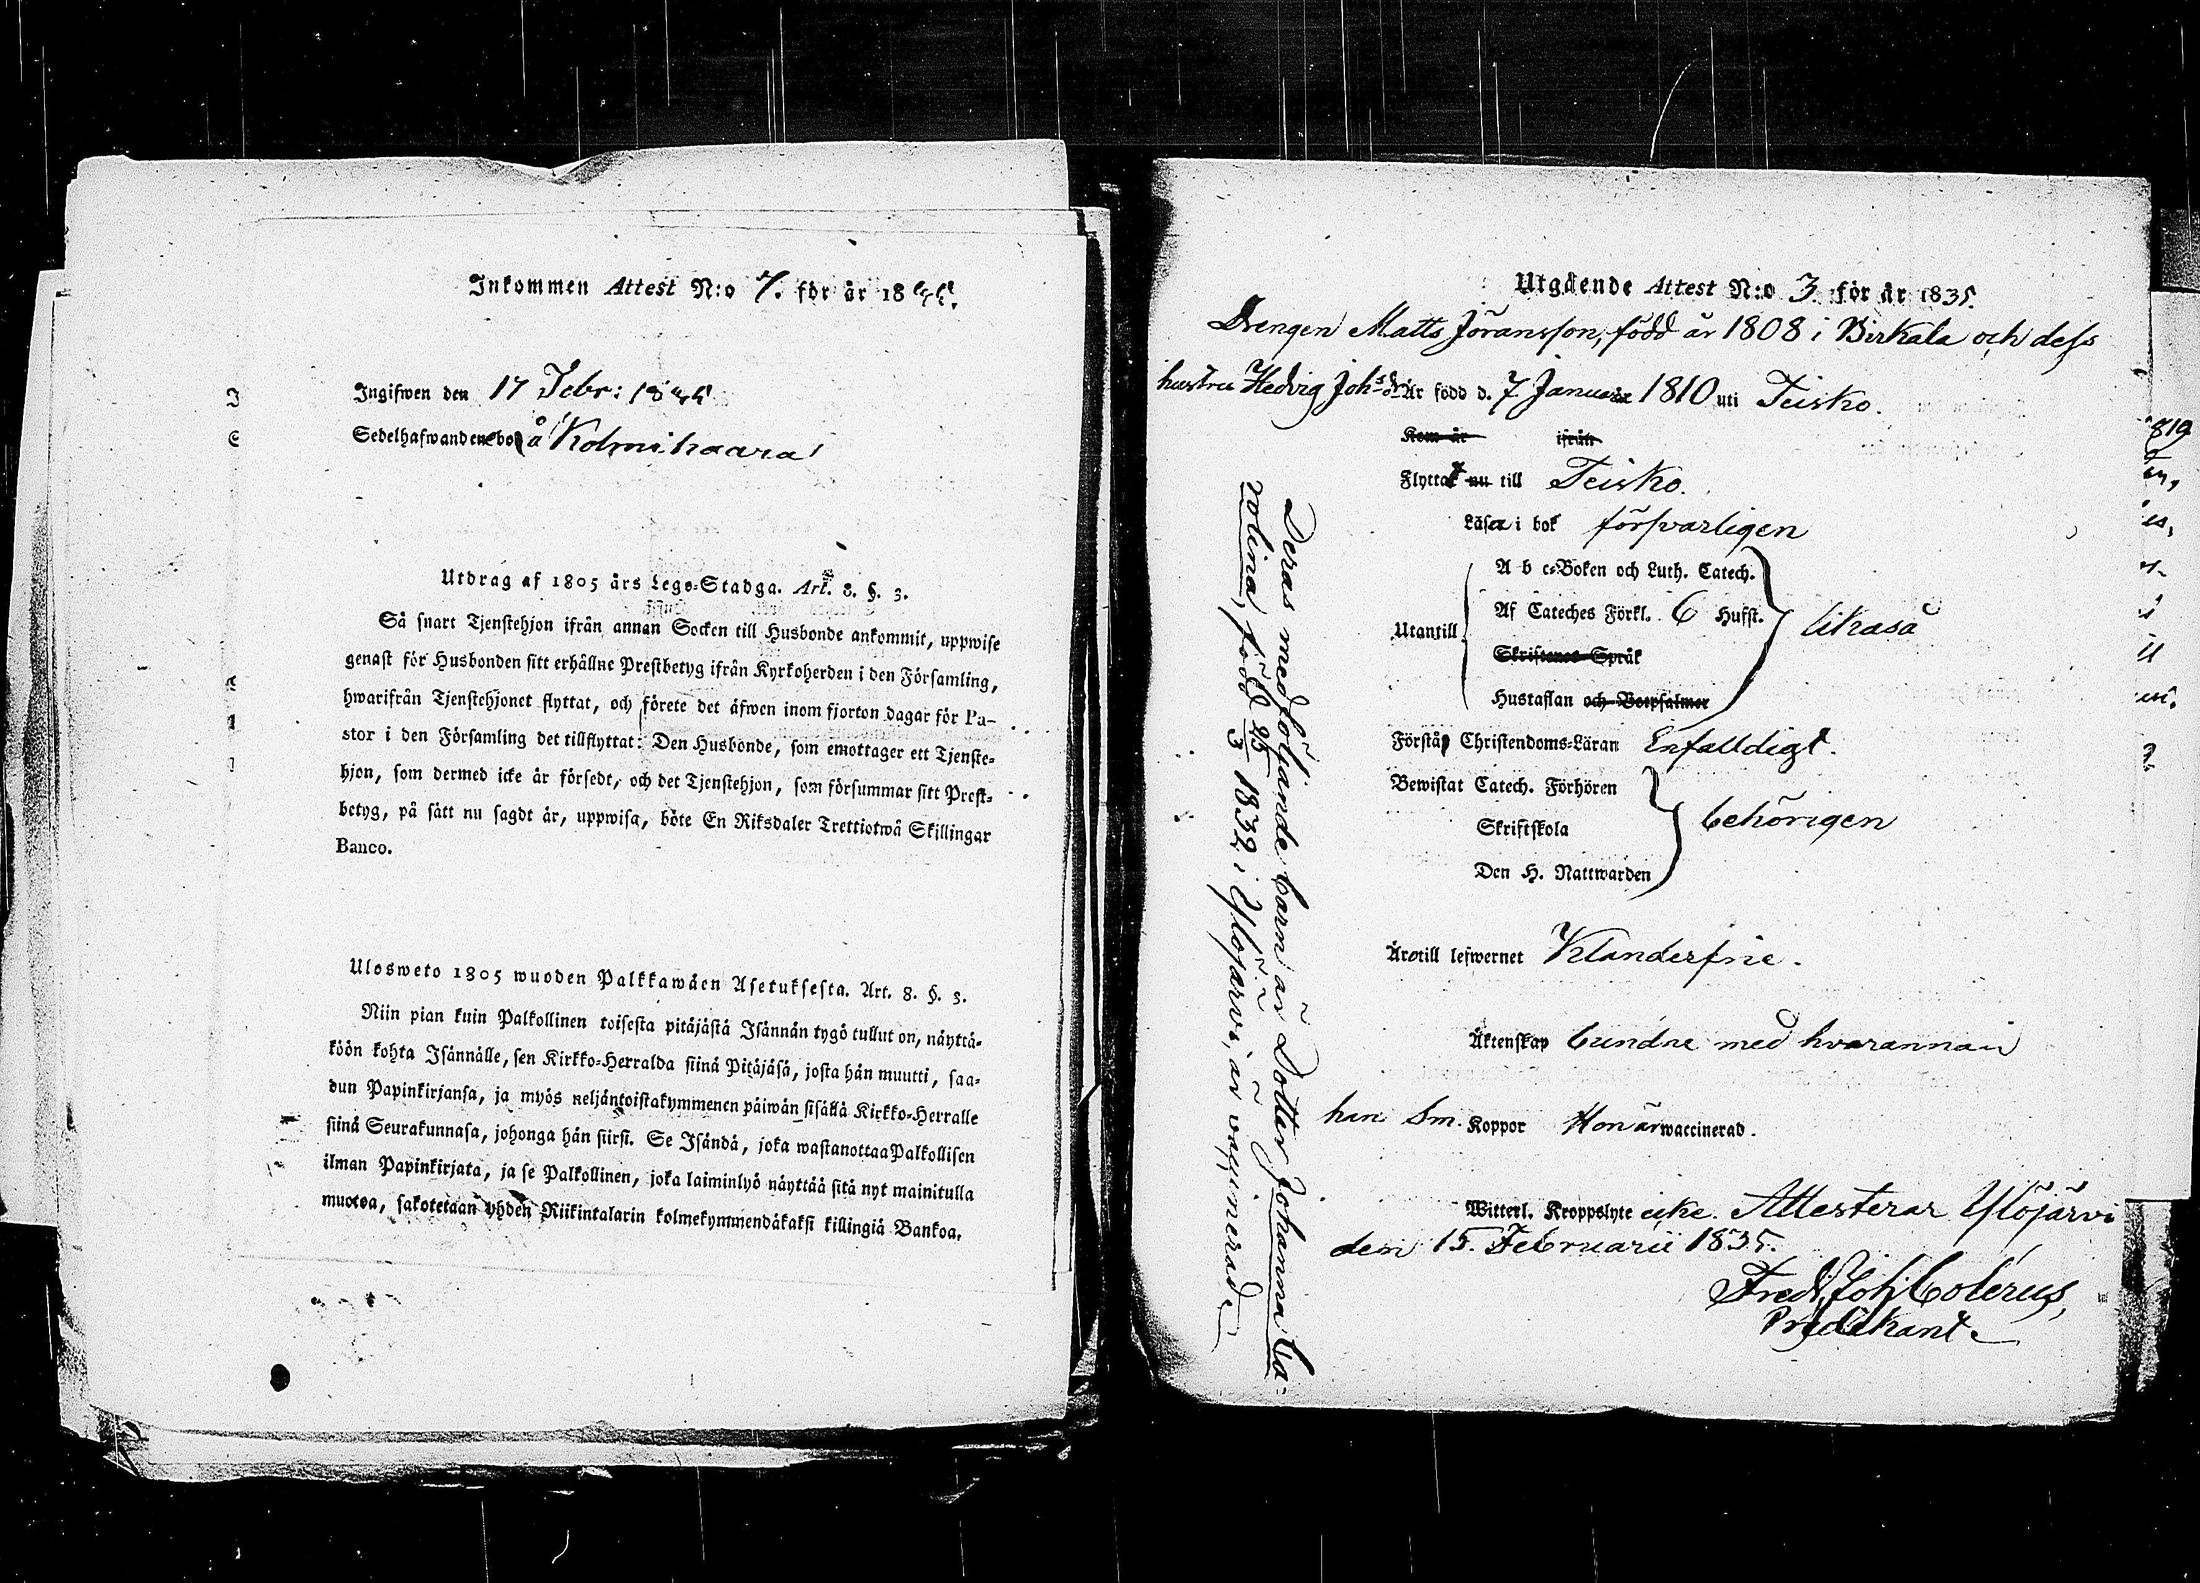 Inkommen Attest N:o 7. för år 1835.
Ingifwen den 17 Febr: 1835
Sedelhafwanden bo å Kolmihaara
Utdrag af 1805 års Lego-Stadga. Art. 8. §. 3.
Så snart Tjenstehjon ifrån annan Socken till Husbonde ankommit, uppwise
genast för Husbonden sitt erhållne Prestbetyg ifrån Kyrkoherden i den Församling,
hwarifrån Tjenstehjonet flyttat, och förete det äfwen inom fjorton dagar för Pa-
stor i den Församling det tillflyttat: Den Husbonde, som emottager ett Tjenste-
hjon, som dermed icke är försedt, och det Tjenstehjon, som försummar sitt Prest-
betyg, på sätt nu sagdt är, uppwisa, böte En Riksdaler Trettiotwå Skillingar
Banco.
Ulosweto 1805 wuoden Palkkawäen Asetuksesta. Art. 8. §. 3.
Niin pian kuin Palkollinen toisesta pitäjästä Isännän tygö tullut on, näyttä-
köön kohta Isännälle, sen Kirkko-Herralda siinä Pitäjäsä, josta hän muutti, saa-
dun Papinkirjansa, ja myös neljäntoistakymmenen päiwän sisällä Kirkko-Herralle
siinä Seurakunnasa, johonga hän siirsi. Se Isändä, joka wastanottaa Palkollisen
ilman Papinkirjata, ja se Palkollinen, joka laiminlyö näyttää sitä nyt mainitulla
muotoa, sakotetaan yhden Riikintalarin kolmekymmendäkaksi killingiä Bankoa.
Utgående Attest N:o 3. för år 1835.
Drengen Matts Jöransson, född år 1808 i Birkala och dess
hustru Hedvig Johsdr Är född d. 7 Januari 1810 uti Teisko.
Kom år ifrån
Flyttat nu till Teisko.
Läser i bok försvarligen
A b c-Boken och Luth. Catech.
Af Cateches Förkl. 6 Hufst.
Utantill likaså
Skriftenes Språk
Hustaflan och Botpsalmer
Förstår Christendoms-Läran Enfalldigt.
Bewistat Catech. Förhören
Skriftskola behörigen
Den H. Nattwarden
Äro till lefwernet Klanderfrie.
Äktenskap bundne med hvarannan
han Sm. Koppor Hon är waccinerad.
Witterl. Kroppslyte icke. Attesterar Ylöjärvi
den 15. Februarii 1835.
Fredr. Joh: Colerus,
Predikant.
Deras medföljande barn är Dotter Johanna Ca-
rolina, född 25/3 1832 i Ylöjärvi, är vaccinerad.
819